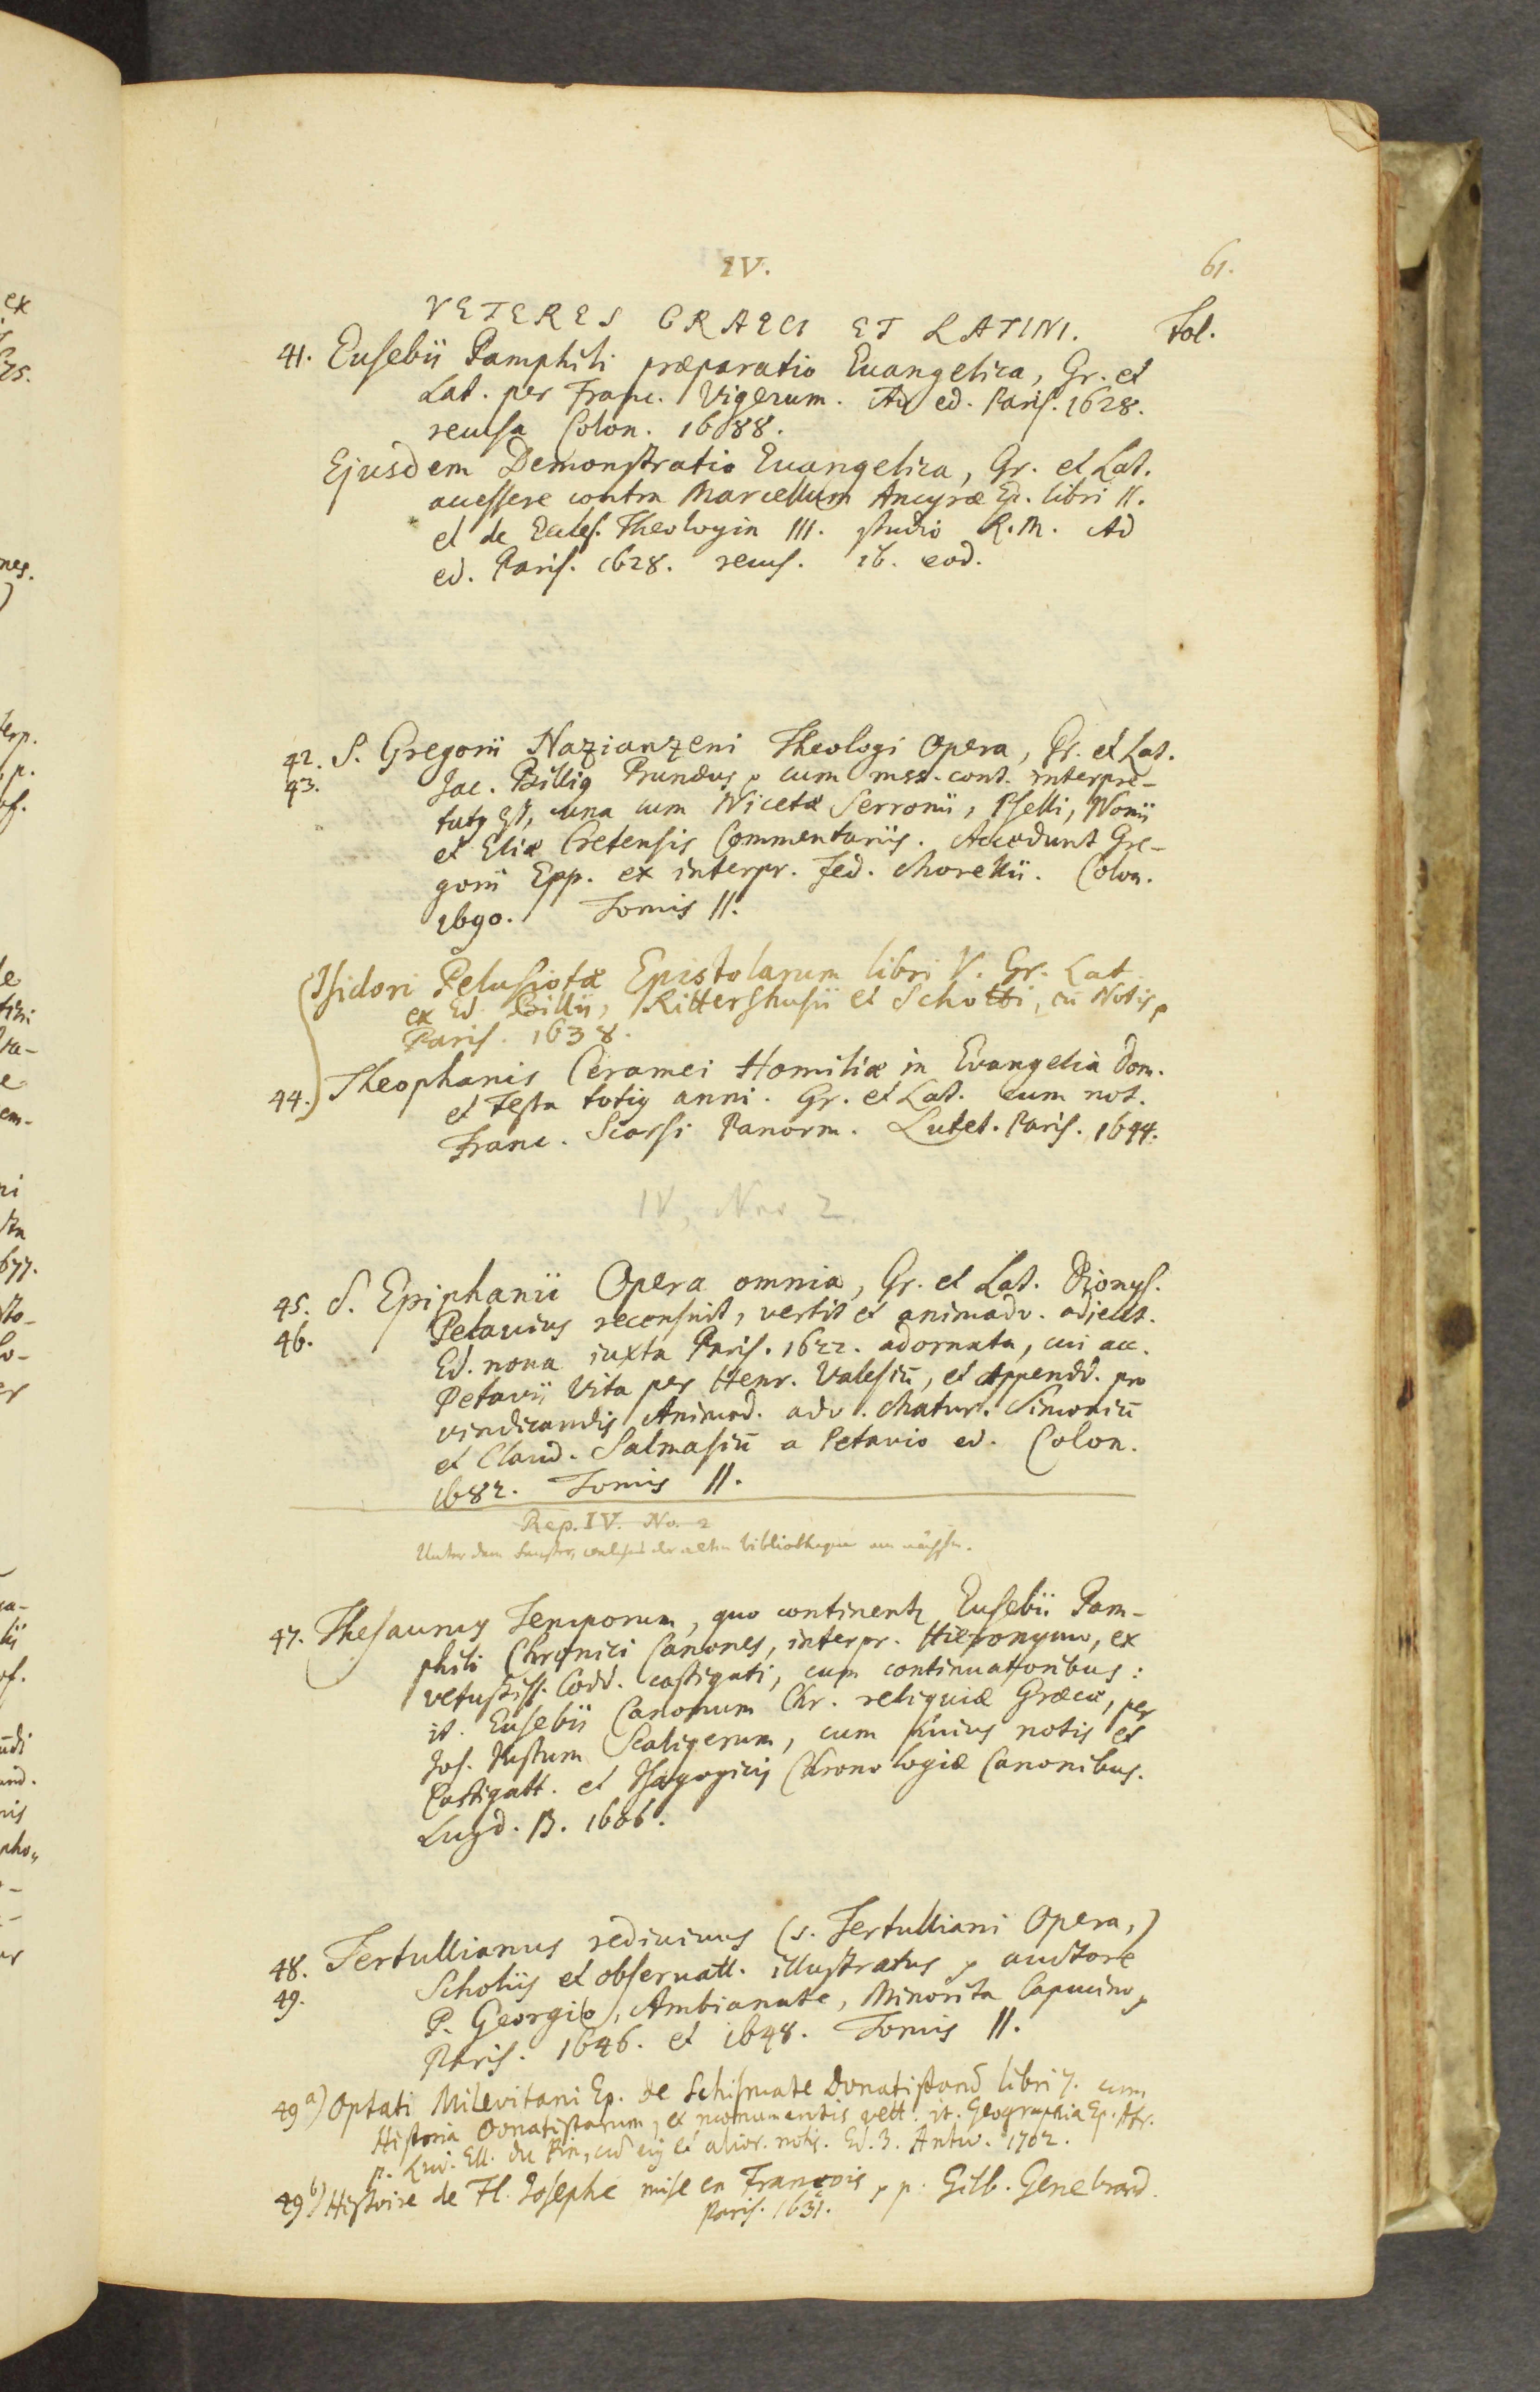 IV. 61.
VETERES GRAECI ET LATINI. Fol.
41. Eusebii Pamphili præparatio Euangelica, Gr. et
Lat. per Franc. Vigerum. Ad ed. Paris. 1628.
recusa Colon. 1688.
Ejusdem Demonstratio Euangelica, Gr. et Lat.
accessere contra Marcellum Ancyræ Ep. libri II.
et de Eccles. Theologia III. studio R. M. Ad
ed. Paris. 1628. recus. ib. eod.
42. S. Gregorii Nazianzeni Theologi Opera, Gr. et Lat.
43. Jac. Billig Prunæus, cum mss. cont. interpre-
tatq est, una cum Nicetæ Serronii, Pselli, Nonii
et Eliæ Cretensis Commentariis. Accedunt Gre-
gorii Epp. ex interpr. Fed. Morellii. Colon.
1690. Tomis II.
Isidori Pelusiotæ Epistolarum libri V. Gr. Lat.
ex Ed. Billii, Rittershusii et Schotti, cū Notis,
Paris. 1638.
44. Theophanis Ceramei Homiliæ in Evangelia Dom.
et Festa totiq anni. Gr. et Lat. cum not.
Franc. Scorsi Panorm. Lutet. Paris. 1644.
IV, Nro 2.
45. S. Epiphanii Opera omnia, Gr. et Lat. Dionys.
46. Petavius recensuit, vertit et animadv. adjecit.
Ed. noua iuxta Paris. 1622. adornata, cui acc.
Petavii Vita per Henr. Valesiū, et Appendd. pro
vindicandis Animad. adv. Matur. Simoniū
et Claud. Salmasiū a Petavio ed. Colon.
1682. Tomis II.
Rep. IV. No. 2
Unter dem Fenster, welches der alten Bibliotheque am nächsten.
47. Thesaurus Temporum, quo continentr Eusebii Pam-
phili Chronici Canones, interpr. Hieronymo, ex
vetustiss. Codd. castigati, cum continuatoribus:
it. Eusebii Canonum Chr. reliquiæ Græcæ, per
Jos. Justum Scaligerum, cum huius notis et
Castigatt. et Isagogicis Chronologiæ Canonibus.
Lugd. B. 1606.
48. Tertullianus rediuiuus (s. Tertulliani Opera,)
49. Scholiis et obseruatt. illustratus, auctore
P. Georgio, Ambianate, Minorita Capucino,
Paris. 1646. et 1648. Tomis II.
49 a) Optati Milevitani Ep. de Schismate Donatistarū libri 7. cum
Historia Donatistarum, ex monumentis vett. it. Geographia Ep. Afr.
p. Lud. Ell. du Pin, cū eiq et alior. notis. Ed. 3. Antw. 1702.
49 b) Histoire de Fl. Josephe mise en François, p. Gilb. Genebrard.
Paris. 1631.